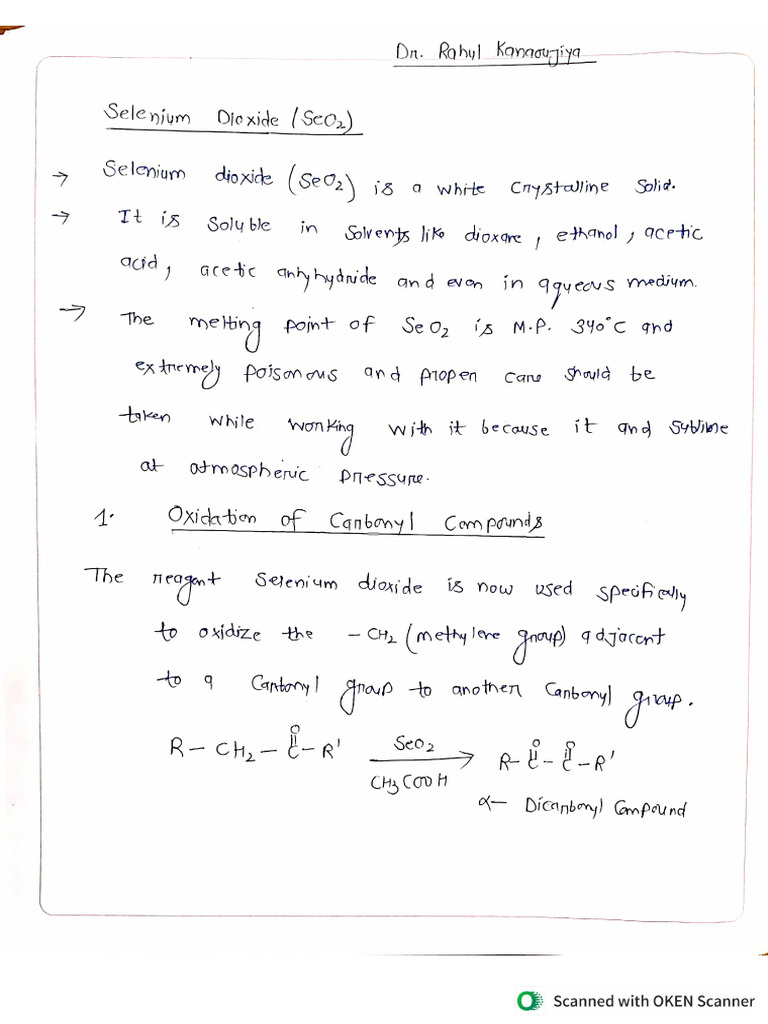 Dr. Rahul Kanaoujiya
Selenium Dioxide (SeO2)
→ Selenium dioxide (SeO2) is a white Crystalline Solid.
→ It is Soluble in Solvents like dioxane, ethanol, acetic
acid, acetic anhyhydride and even in aqueous medium.
→ The melting point of SeO2 is M.P. 340°C and
extremely poisonous and proper care should be
taken while working with it because it and Sublime
at atmospheric pressure.
1. Oxidation of Carbonyl Compounds
The reagent Selenium dioxide is now used specifically
to oxidize the -CH2 (methylene group) adjacent
to a Carbonyl group to another Carbonyl group.
R-CH2-C(=O)-R' SeO2 / CH3COOH → R-C(=O)-C(=O)-R'
α- Dicarbonyl Compound
Scanned with OKEN Scanner